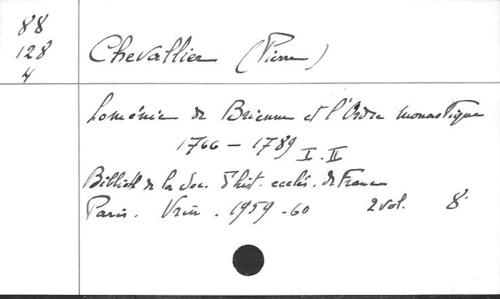 88
128
4
Chevallier (Pierre)
Loménie de Brienne et l'Ordre monastique
1766 - 1789 I. II
Biblioth de la Soc. d'hist. ecclés. de France
Paris. Vrin. 1959-60 2 vol. 8°